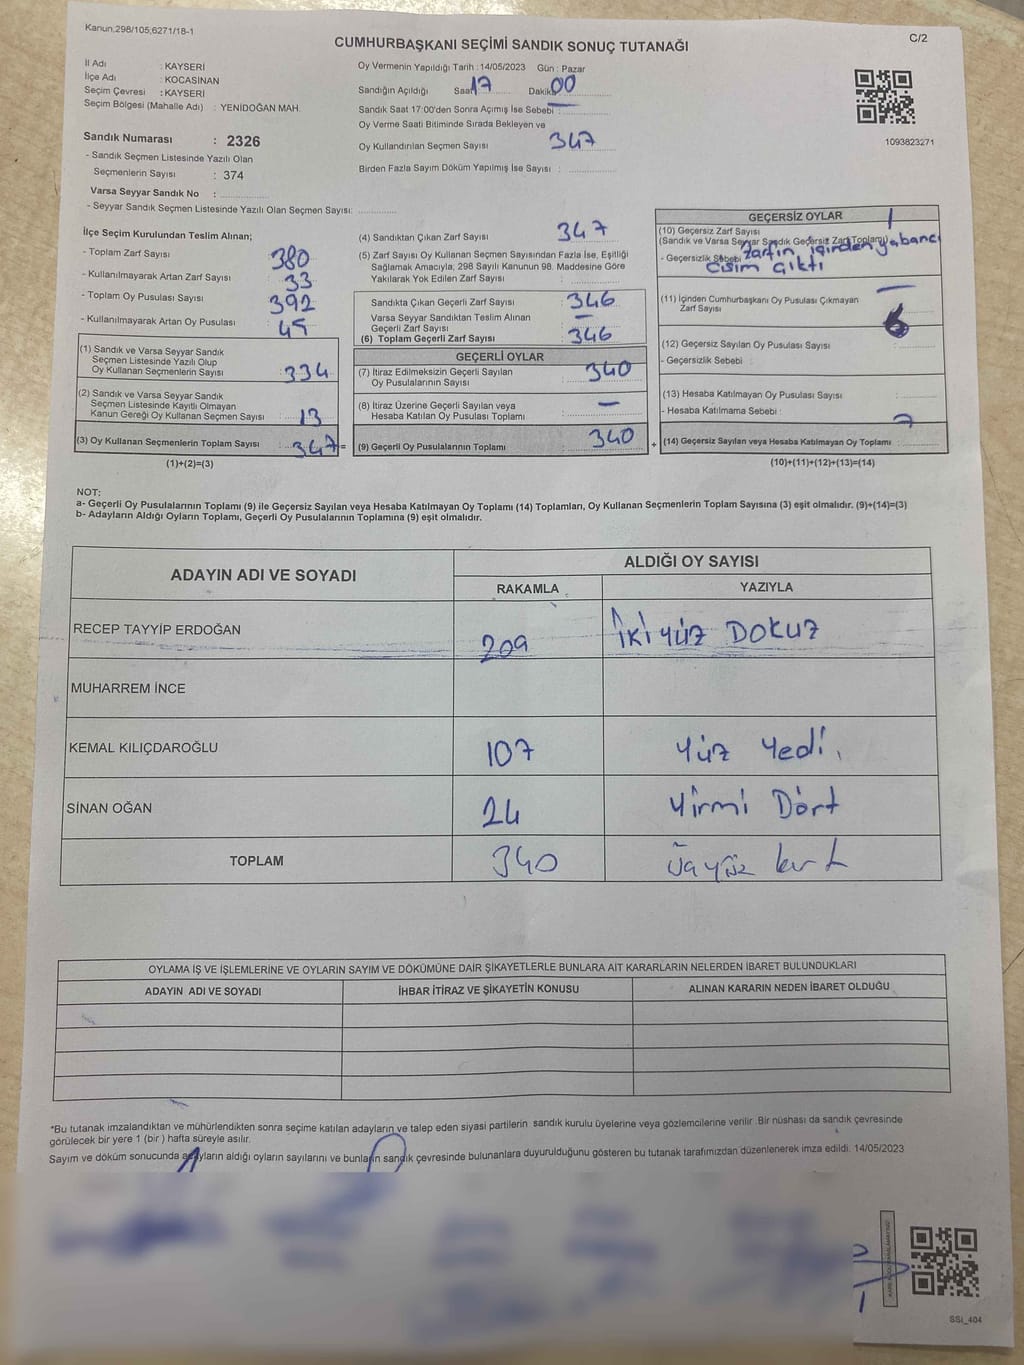 Kanun,298/105;6271/18-1
C/2
CUMHURBAŞKANI SEÇİMİ SANDIK SONUÇ TUTANAĞI
İl Adı : KAYSERİ
İlçe Adı : KOCASİNAN
Seçim Çevresi : KAYSERİ
Seçim Bölgesi (Mahalle Adı) : YENİDOĞAN MAH.
Sandık Numarası : 2326
- Sandık Seçmen Listesinde Yazılı Olan
Seçmenlerin Sayısı : 374
Varsa Seyyar Sandık No :
- Seyyar Sandık Seçmen Listesinde Yazılı Olan Seçmen Sayısı:
Oy Vermenin Yapıldığı Tarih : 14/05/2023 Gün : Pazar
Sandığın Açıldığı Saat 17 Dakika 00
Sandık Saat 17:00'den Sonra Açımış İse Sebebi : —
Oy Verme Saati Bitiminde Sırada Bekleyen ve
Oy Kullandırılan Seçmen Sayısı 347
Birden Fazla Sayım Döküm Yapılmış İse Sayısı :
1093823271
İlçe Seçim Kurulundan Teslim Alınan;
- Toplam Zarf Sayısı 380
- Kullanılmayarak Artan Zarf Sayısı 33
- Toplam Oy Pusulası Sayısı 392
- Kullanılmayarak Artan Oy Pusulası : 45
(1) Sandık ve Varsa Seyyar Sandık
Seçmen Listesinde Yazılı Olup
Oy Kullanan Seçmenlerin Sayısı : 334
(2) Sandık ve Varsa Seyyar Sandık
Seçmen Listesinde Kayıtlı Olmayan
Kanun Gereği Oy Kullanan Seçmen Sayısı : 13
(3) Oy Kullanan Seçmenlerin Toplam Sayısı : 347 =
(1)+(2)=(3)
(4) Sandıktan Çıkan Zarf Sayısı 347
(5) Zarf Sayısı Oy Kullanan Seçmen Sayısından Fazla İse, Eşitliği
Sağlamak Amacıyla, 298 Sayılı Kanunun 98. Maddesine Göre
Yakılarak Yok Edilen Zarf Sayısı :
Sandıkta Çıkan Geçerli Zarf Sayısı : 346
Varsa Seyyar Sandıktan Teslim Alınan
Geçerli Zarf Sayısı : —
(6) Toplam Geçerli Zarf Sayısı : 346
GEÇERLİ OYLAR
(7) İtiraz Edilmeksizin Geçerli Sayılan
Oy Pusulalarının Sayısı : 340
(8) İtiraz Üzerine Geçerli Sayılan veya
Hesaba Katılan Oy Pusulası Toplamı : —
(9) Geçerli Oy Pusulalarının Toplamı : 340 +
GEÇERSİZ OYLAR
(10) Geçersiz Zarf Sayısı 1
(Sandık ve Varsa Seyyar Sandık Geçersiz Zarf Toplamı)
- Geçersizlik Sebebi : Zarfın içinden yabancı
cisim çıktı
(11) İçinden Cumhurbaşkanı Oy Pusulası Çıkmayan —
Zarf Sayısı
(12) Geçersiz Sayılan Oy Pusulası Sayısı : 6
- Geçersizlik Sebebi :
(13) Hesaba Katılmayan Oy Pusulası Sayısı :
- Hesaba Katılmama Sebebi :
(14) Geçersiz Sayılan veya Hesaba Katılmayan Oy Toplamı : 7
(10)+(11)+(12)+(13)=(14)
NOT;
a- Geçerli Oy Pusulalarının Toplamı (9) ile Geçersiz Sayılan veya Hesaba Katılmayan Oy Toplamı (14) Toplamları, Oy Kullanan Seçmenlerin Toplam Sayısına (3) eşit olmalıdır. (9)+(14)=(3)
b- Adayların Aldığı Oyların Toplamı, Geçerli Oy Pusulalarının Toplamına (9) eşit olmalıdır.
ADAYIN ADI VE SOYADI
ALDIĞI OY SAYISI
RAKAMLA YAZIYLA
RECEP TAYYİP ERDOĞAN 209 İki yüz Dokuz
MUHARREM İNCE
KEMAL KILIÇDAROĞLU 107 Yüz Yedi.
SİNAN OĞAN 24 Yirmi Dört
TOPLAM 340
OYLAMA İŞ VE İŞLEMLERİNE VE OYLARIN SAYIM VE DÖKÜMÜNE DAİR ŞİKAYETLERLE BUNLARA AİT KARARLARIN NELERDEN İBARET BULUNDUKLARI
ADAYIN ADI VE SOYADI İHBAR İTİRAZ VE ŞİKAYETİN KONUSU ALINAN KARARIN NEDEN İBARET OLDUĞU
*Bu tutanak imzalandıktan ve mühürlendikten sonra seçime katılan adayların ve talep eden siyasi partilerin sandık kurulu üyelerine veya gözlemcilerine verilir. Bir nüshası da sandık çevresinde
görülecek bir yere 1 (bir ) hafta süreyle asılır.
Sayım ve döküm sonucunda adayların aldığı oyların sayılarını ve bunların sandık çevresinde bulunanlara duyurulduğunu gösteren bu tutanak tarafımızdan düzenlenerek imza edildi. 14/05/2023
SSİ_404